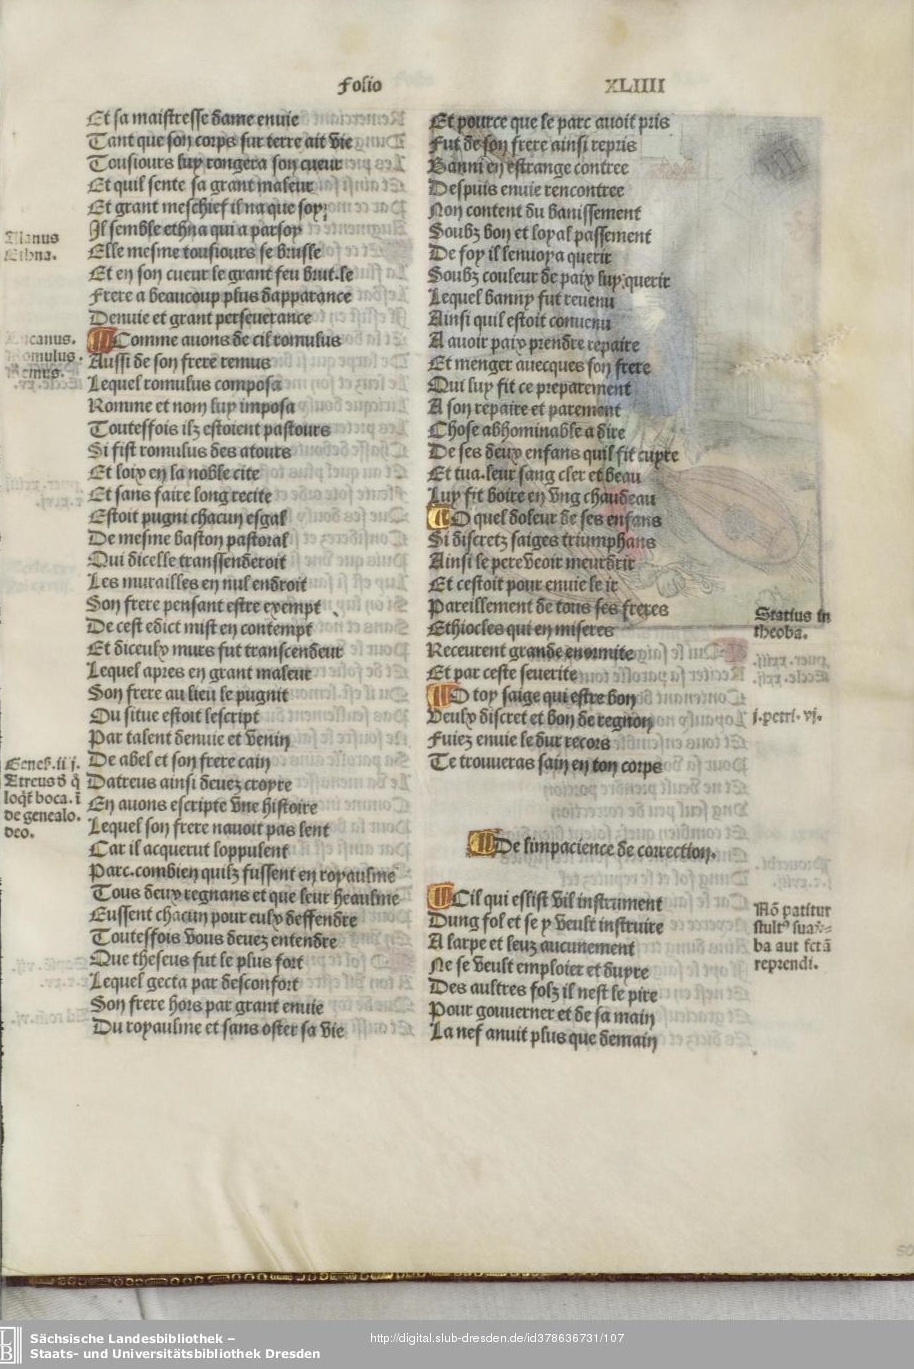 Folio XLIIII
Et sa maistresse dame enuie
Tant que son corps sur terre ait vie
Tousiours luy rongera son cueur
Et quil sente sa grant maleur
Et grant meschief il na que soy
Il semble ethna qui a parsoy
Elle mesme tousiours se brusle
Et en son cueur le grant feu brusle
Frere a beaucoup plus dapparance
Denuie et grant perseuerance
Comme auons de cil romulus
Aussi de son frere remus
Lequel romulus composa
Romme et nom luy imposa
Toutesfois ilz estoient pastours
Si fist romulus des atours
Et loix en la noble cite
Et sans faire long recite
Estoit pugni chacun esgal
De mesme baston pastoral
Qui dicelle transsenderoit
Les murailles en nul endroit
Son frere pensant estre exempt
De cest edict mist en contempt
Et diceulx murs fut transcendeur
Lequel apres en grant maleur
Son frere au lieu le pugnit
Ou situe estoit lescript
Par talent denuie et venin
De abel et son frere cain
Datreus ainsi deuez croyre
En auons escripte vne histoire
Lequel son frere nauoit pas lent
Car il acquerut loppulent
Parc.combien quilz fussent en royaulme
Tous deux regnans et que leur heaulme
Eussent chacun pour eulx deffendre
Toutesfois vous deuez entendre
Que theseus fut le plus fort
Lequel gecta par desconfort
Son frere hors par grant enuie
Du royaulme et sans oster sa vie
Manus
Ethna.
canus.
omulus.
emus.
Genes.iiij.
Etreus d q̄
loqt̄ boca.ī
de genealo.
deo.
Et pource que le parc auoit pris
Fut de son frere ainsi repris
Banni en estrange contree
Despuis enuie rencontree
Non content du banissement
Soubz bon et loyal passement
De foy il lenuoya querir
Soubz couleur de paix luy querir
Lequel banny fut reuenu
Ainsi quil estoit conuenu
A auoir paix prendre repaire
Et menger auecques son frere
Qui luy fit ce preparement
A son repaire et parement
Chose abhominable a dire
De ses deux enfans quil fit cuyre
Et tua.leur sang cler et beau
Luy fit boire en vng chaudeau
O quel doleur de ses enfans
Si discretz saiges triumphans
Ainsi le pere veoir meurdrir
Et cestoit pour enuie le ir
Pareillement de tous ses freres
Ethiocles qui en miseres
Receurent grande enormite
Et par ceste seuerite
O toy saige qui estre bon
Veulx discret et bon de regnon
Fuiez enuie le dur recors
Te trouueras sain en ton corps
De limpacience de correction.
Cil qui eslist vil instrument
Dung fol et se y veult instruire
A larpe et leuz aucunement
Ne se veult emploier et duyre
Des aultres folz il nest le pire
Pour gouuerner et de sa main
La nef anuit plus que demain
Statius in
theoba.
j.petri.vj.
Nō patitur
ba aut
reprendi.
50
Sächsische Landesbibliothek –
Staats- und Universitätsbibliothek Dresden
http://digital.slub-dresden.de/id378636731/107